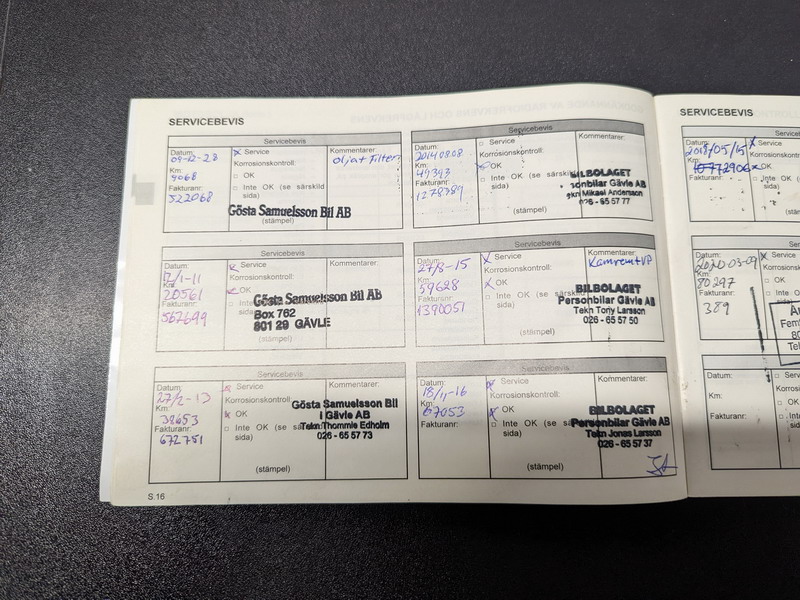 SERVICEBEVIS
Servicebevis
Datum:
09-12-28
Km:
9068
Fakturanr:
522068
x Service
Korrosionskontroll:
□ OK
□ Inte OK (se särskild
sida)
Kommentarer:
olja + Filter
Gösta Samuelsson Bil AB
(stämpel)
Servicebevis
Datum:
20140808
Km:
49393
Fakturanr:
1278384
□ Service
Korrosionskontroll:
OK
□ Inte OK (se särskild
sida)
Kommentarer:
BILBOLAGET
Personbilar Gävle AB
Tekn Mikael Andersson
026 - 65 57 77
(stämpel)
Servicebevis
Datum:
12/1-11
Km:
20561
Fakturanr:
567699
x Service
Korrosionskontroll:
x OK
□ Inte OK
sida)
Kommentarer:
Gösta Samuelsson Bil AB
Box 762
801 29 GÄVLE
(stämpel)
Servicebevis
Datum:
27/8-15
Km:
59628
Fakturanr:
1390051
x Service
Korrosionskontroll:
x OK
□ Inte OK (se särskild
sida)
Kommentarer:
Kamremt VP
BILBOLAGET
Personbilar Gävle AB
Tekn Tony Larsson
026 - 65 57 50
(stämpel)
Servicebevis
Datum:
27/2-13
Km:
38653
Fakturanr:
672751
x Service
Korrosionskontroll:
x OK
□ Inte OK (se särskild
sida)
Kommentarer:
Gösta Samuelsson Bil
i Gävle AB
Tekn:Thommie Edholm
026 - 65 57 73
(stämpel)
Servicebevis
Datum:
18/11-16
Km:
67053
Fakturanr:
x Service
Korrosionskontroll:
x OK
□ Inte OK (se särskild
sida)
Kommentarer:
BILBOLAGET
Personbilar Gävle AB
Tekn Jonas Larsson
026 - 65 57 37
(stämpel)
S.16
SERVICEBEVIS
Datum:
2018/05/15
Km:
Fakturanr:
x Service
Korrosionskontroll:
OK
□ Inte OK (se
sida)
Datum:
2020-03-09
Km:
80297
Fakturanr:
389
x Service
Korrosionskontroll:
□ OK
□ Inte
sida)
Datum:
Km:
Fakturanr:
□ Service
Korrosionskontroll:
□ OK
□ Inte OK (se
sida)